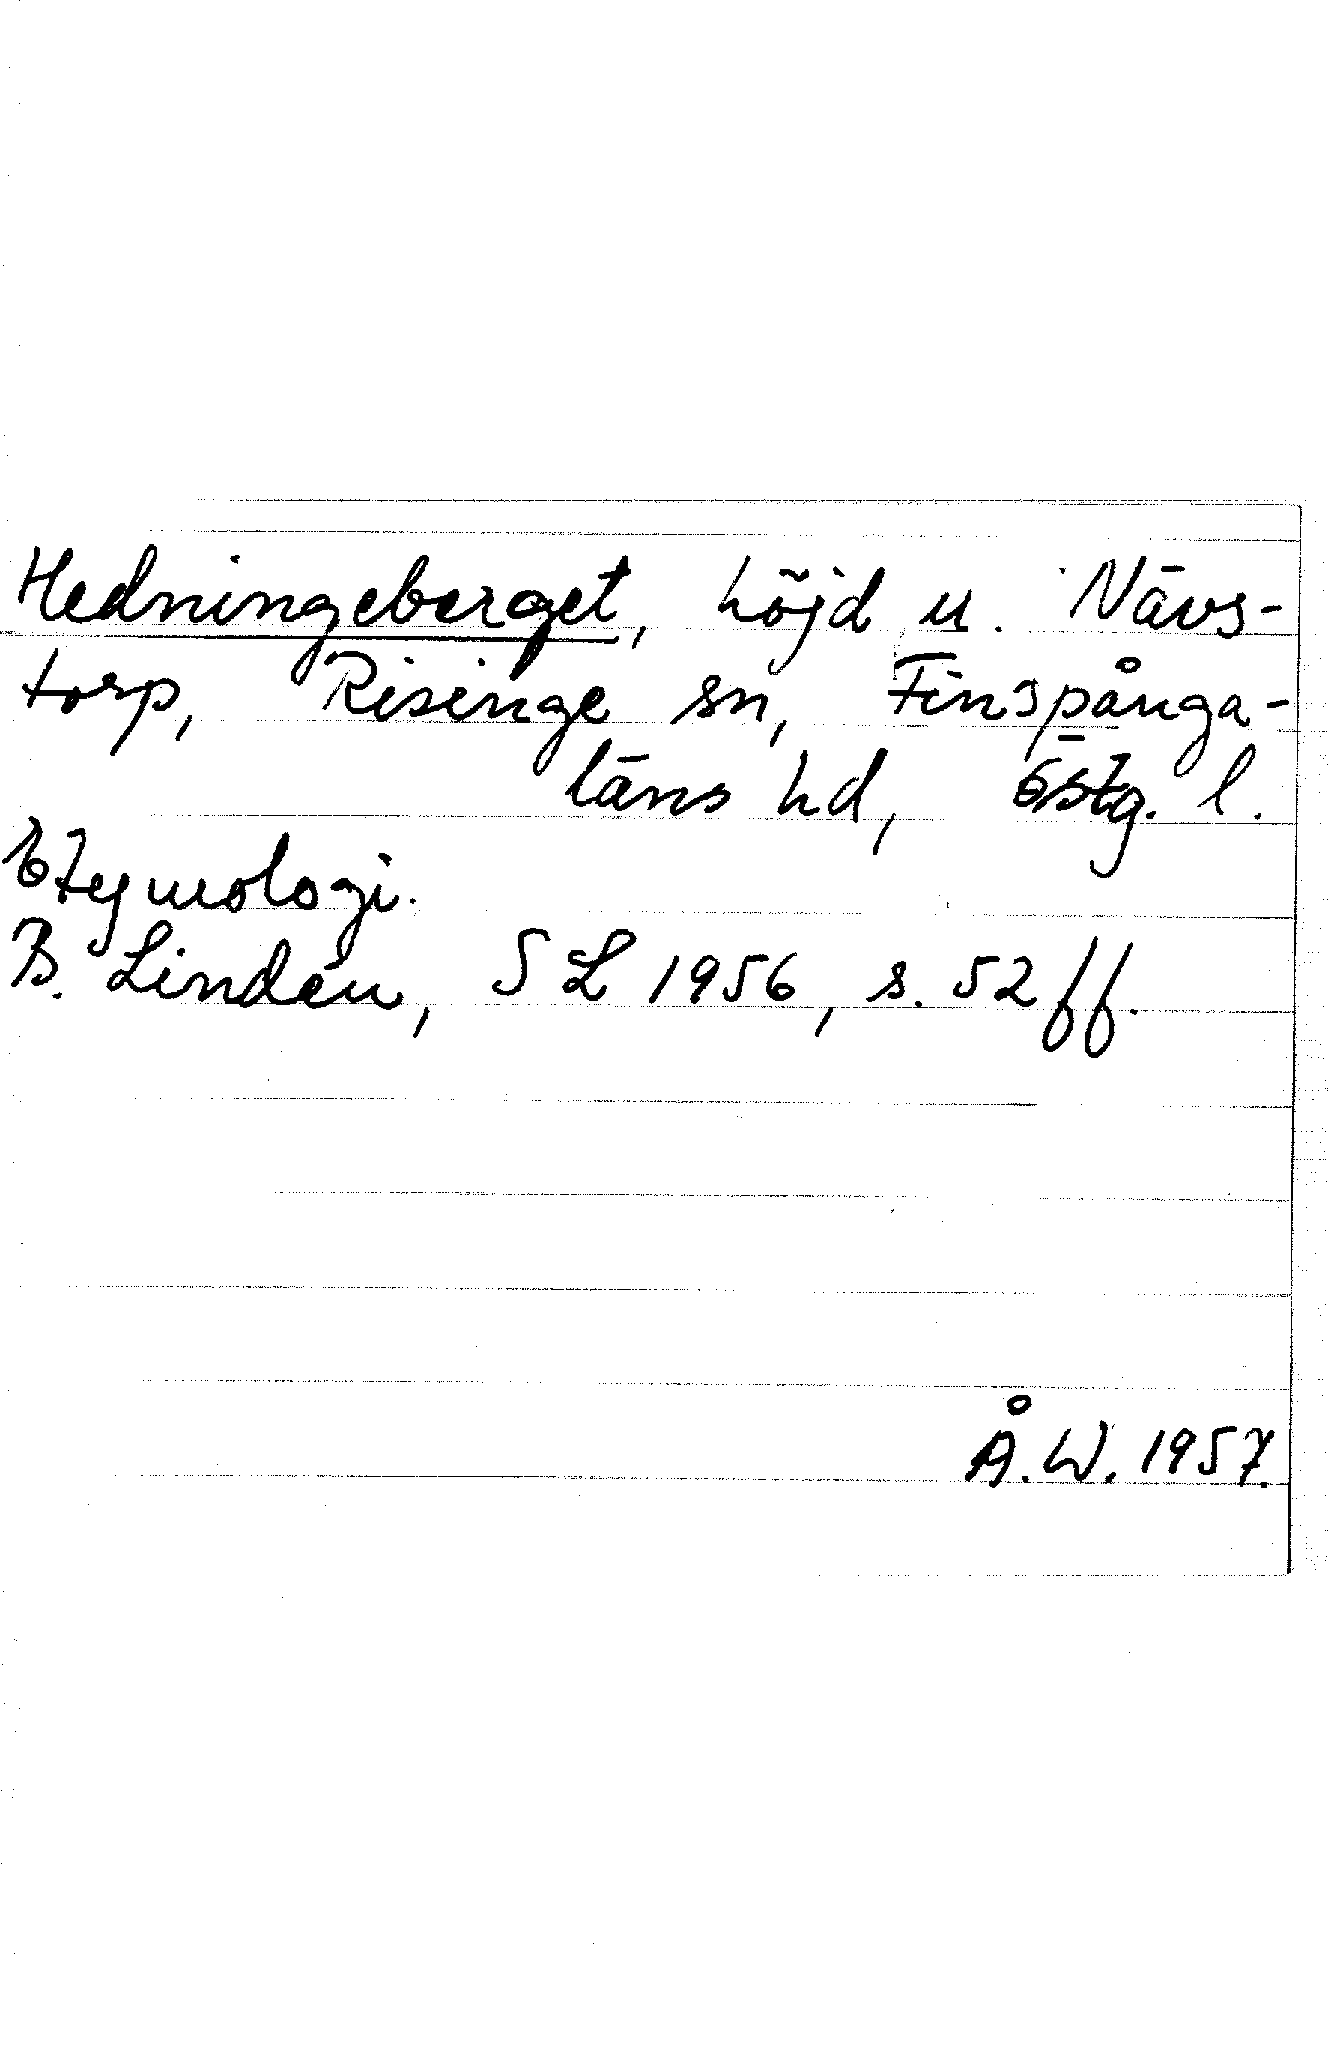 Hedningeberget, höjd u. Nävs-
torp, Risinge sn, Finspånga-
läns hd, Östg. l.
Etymologi.
B. Lindén, SL 1956, s. 52 ff.
Å.W. 1957.